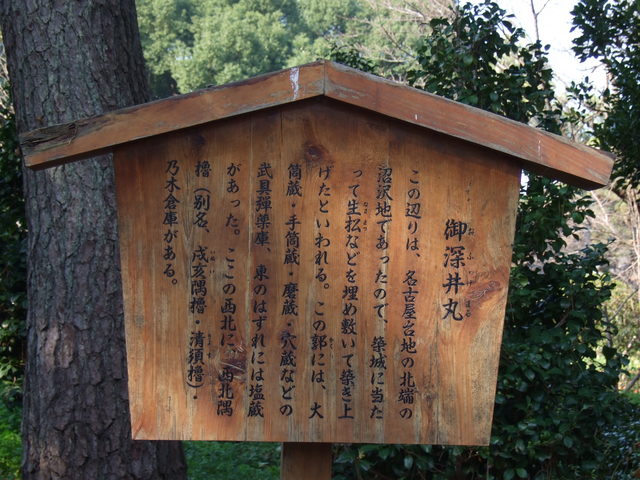 御深井丸
この辺りは、名古屋台地の北端の
沼沢地であったので、築城に当た
って生松などを埋め敷いて築き上
げたといわれる。この郭には、大
筒蔵・手筒蔵・磨蔵・穴蔵などの
武具弾薬庫、東のはずれには塩蔵
があった。ここの西北に、西北隅
櫓（別名、戌亥隅櫓・清須櫓）・
乃木倉庫がある。